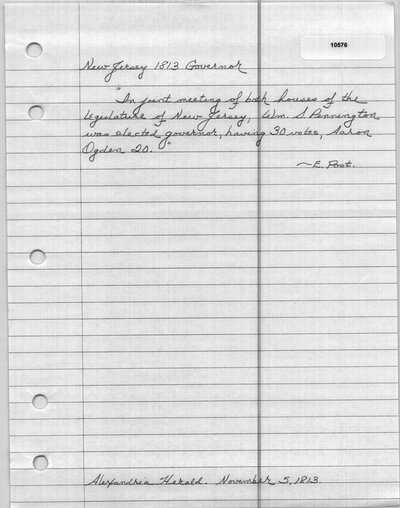 10576
New Jersey 1813 Governor
"In joint meeting of both houses of the
Legislature of New Jersey, Wm. S Pennington
was elected governor, having 30 votes, Aaron
Ogden 20."
~E. Post.
Alexandria Herald. November 5, 1813.